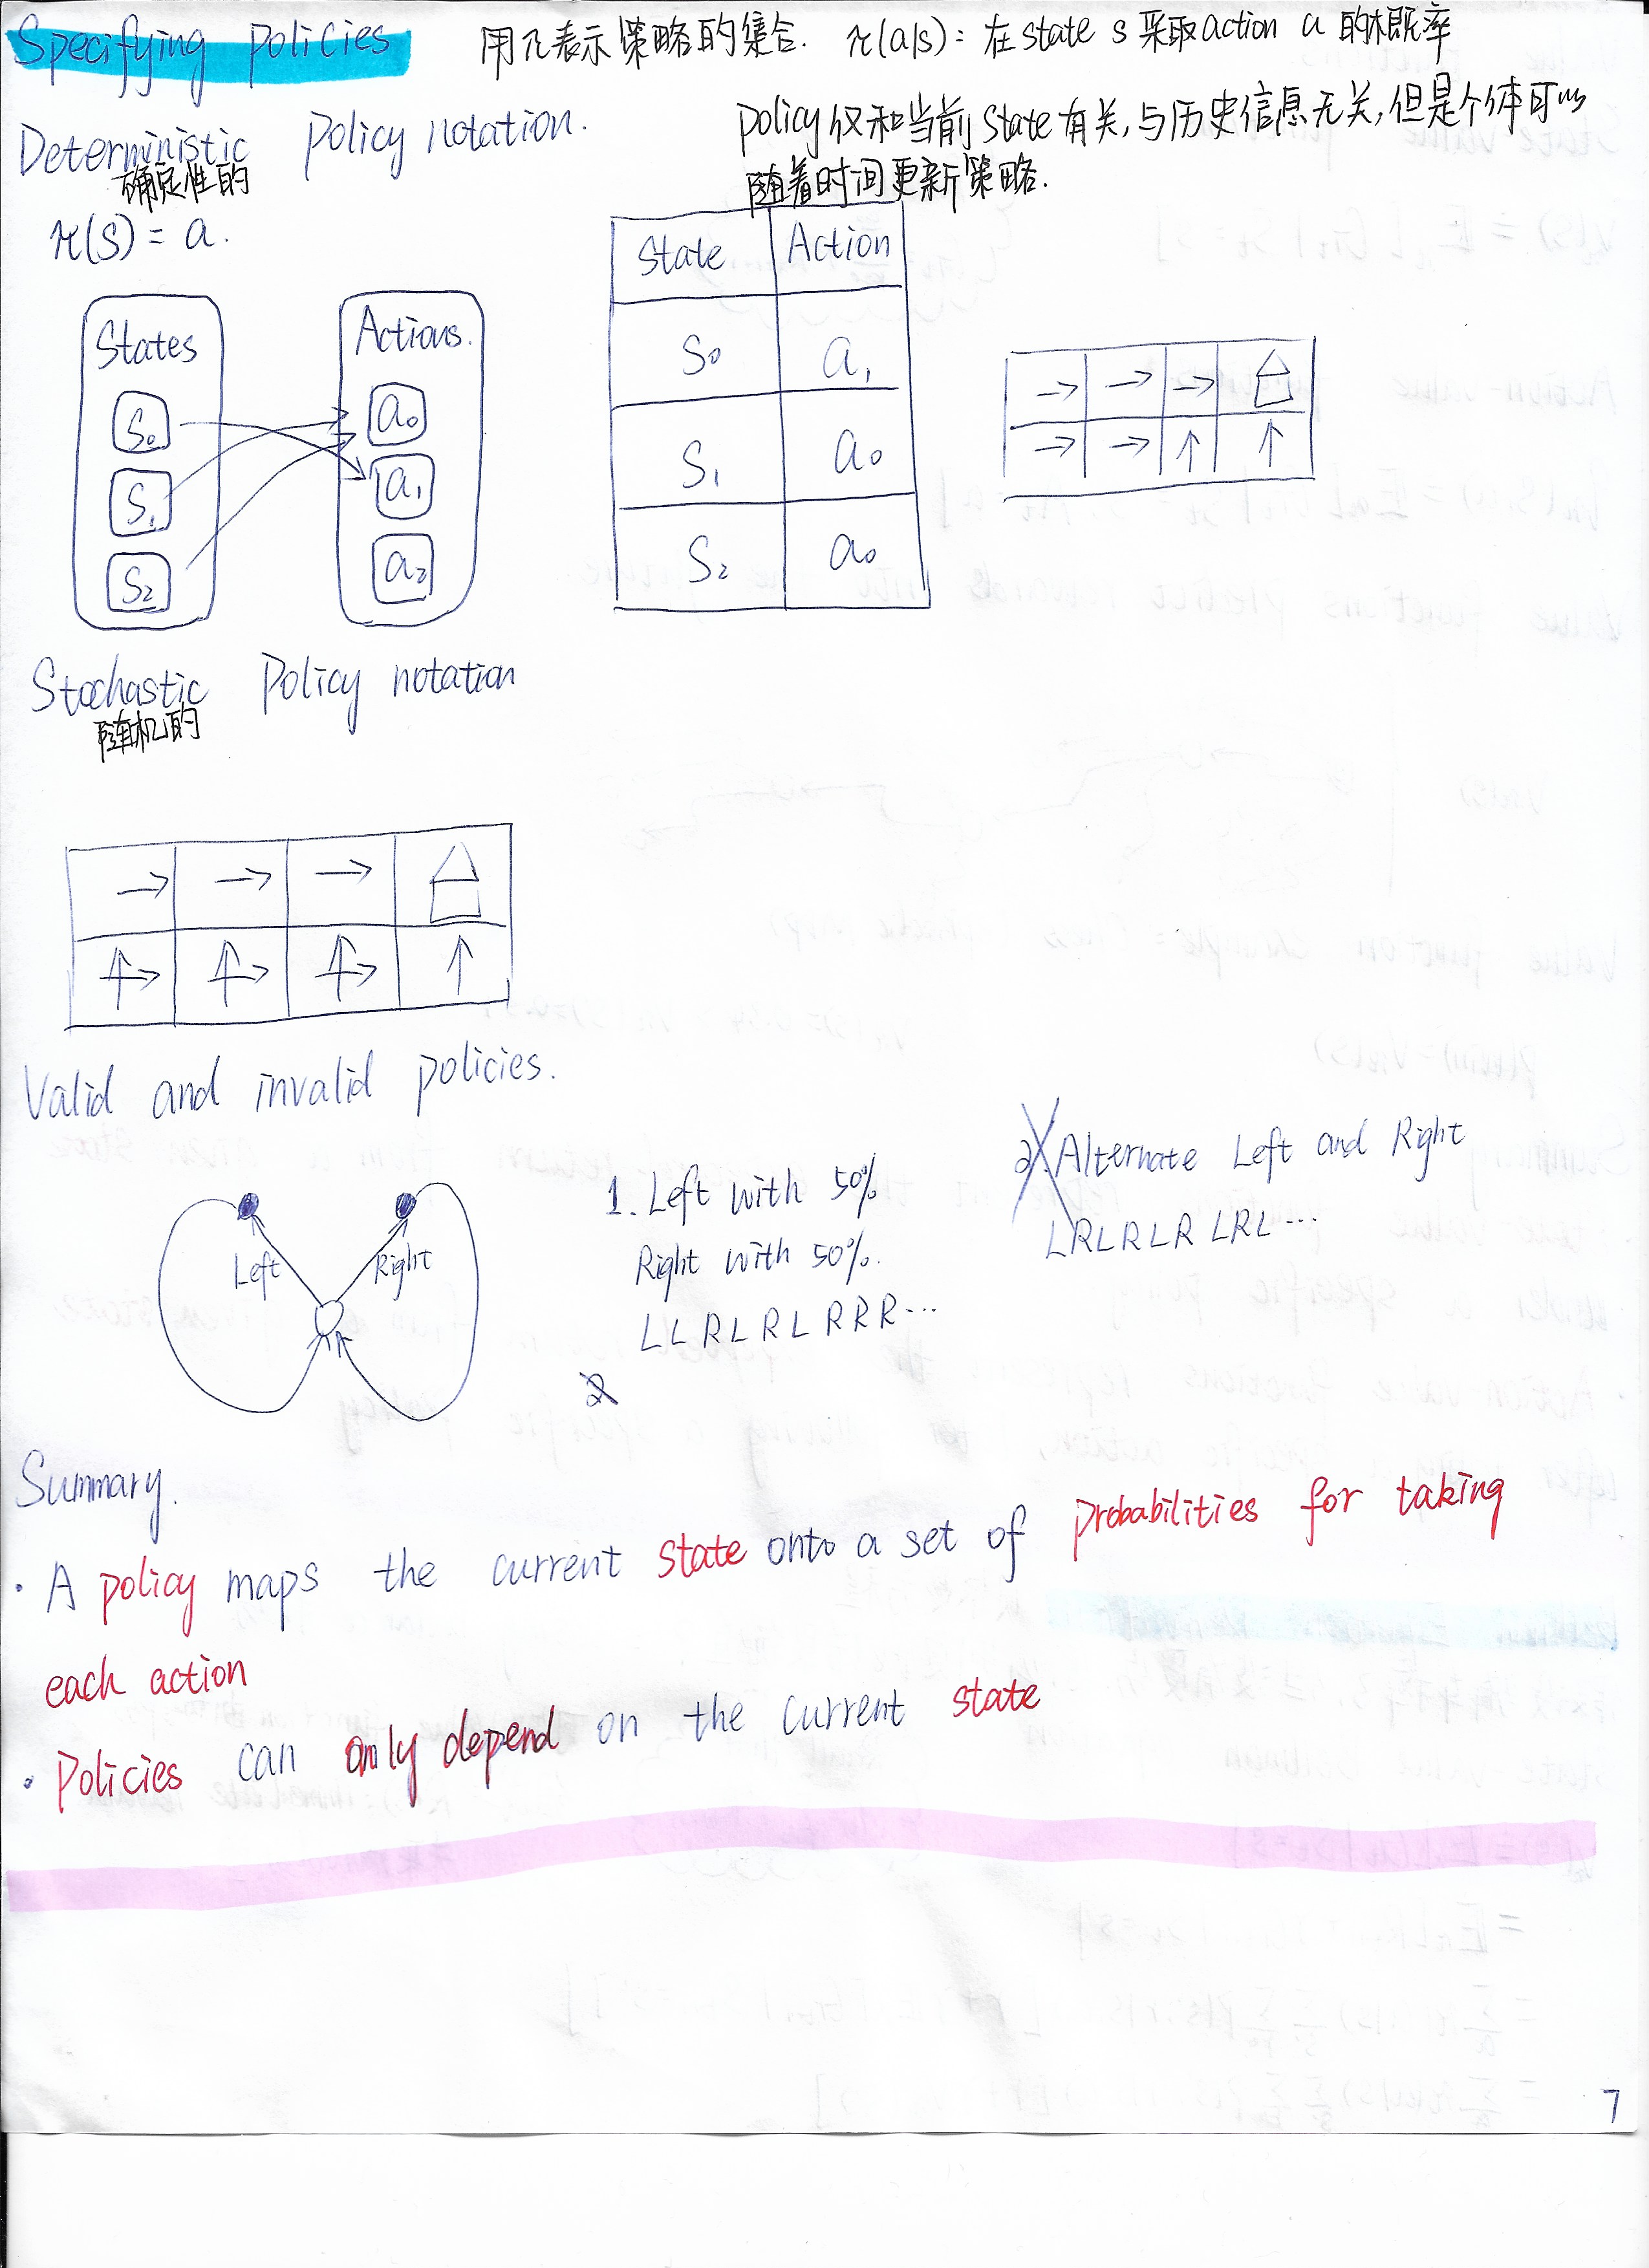 Specifying policies 用π表示策略的集合. π(a|s): 在state s 采取action a 的概率
Deterministic policy notation.
确定性的
policy仅和当前state有关,与历史信息无关,但是个体可以
随着时间更新策略.
π(s) = a.
States
S0
S1
S2
Actions.
a0
a1
a2
State Action
S0 a1
S1 a0
S2 a0
→ → → 
→ → ↑ ↑
Stochastic Policy notation
随机的
→ → →
↑→ ↑→ ↑→ ↑
Valid and invalid policies.
Left
Right
1. Left with 50%
Right with 50%.
L L R L R L R R R ...
2. Alternate Left and Right
L R L R L R L R L ...
2
Summary.
· A policy maps the current state onto a set of probabilities for taking
each action
· Policies can only depend on the current state
7